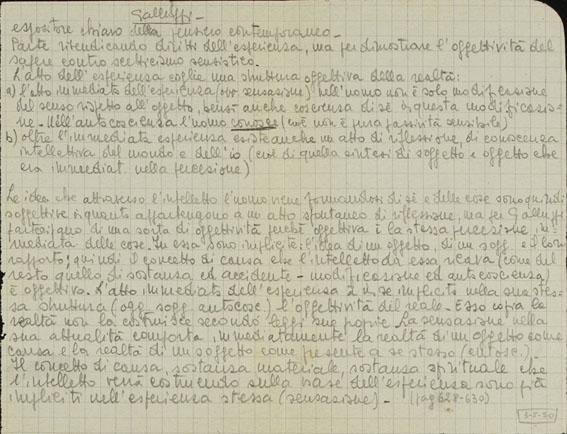 Galluppi -
espositore chiaro della pensiero contemporaneo -
Parte rivendicando diritti dell'esperienza, ma per dimostrare l'oggettività del
sapere contro scetticismo sensistico.
L'atto dell'esperienza coglie una struttura oggettiva della realtà:
a) l'atto immediato dell'esperienza (ovv. sensazione) nell'uomo non è solo modificazione
del senso rispetto all'oggetto, bensì anche coscienza di sè in questa modificazio-
ne - Nell'autocoscienza l'uomo conosce (cioè non è pura passività sensibile)
b) oltre l'immediata esperienza esiste anche un atto di riflessione, di conoscenza
intellettiva del mondo e dell'io (cioè di quella sintesi di soggetto e oggetto che
era immediata nella percezione)
Le idee che attraverso l'intelletto l'uomo viene formandosi di sè e delle cose sono quindi
soggettive in quanto appartengono a un atto spontaneo di riflessione, ma per Galluppi
partecipano di una sorta di oggettività perché oggettiva è la stessa percezione, im-
mediata delle cose. In essa sono implicite: l'idea di un oggetto, di un sogg. e il loro
rapporto; quindi il concetto di causa che l'intelletto da essa ricava (come del
resto quello di sostanza ed accidente - modificazione ed autocoscienza)
è oggettivo. L'atto immediato dell'esperienza implicito nella sua stes-
sa struttura (ogg. sogg. autocosc.) l'oggettività del reale - Esso copia la
realtà non la costruisce secondo leggi sue proprie. La sensazione nella
sua attualità comporta immediatamente la realtà di un oggetto come
causa e la realtà di un soggetto come presente a se stesso (autosc.) -
Il concetto di causa, sostanza materiale, sostanza spirituale che
l'intelletto verrà costruendo sulla base dell'esperienza sono già
impliciti nell'esperienza stessa (sensazione) - (pag 628-630)
3-5-50